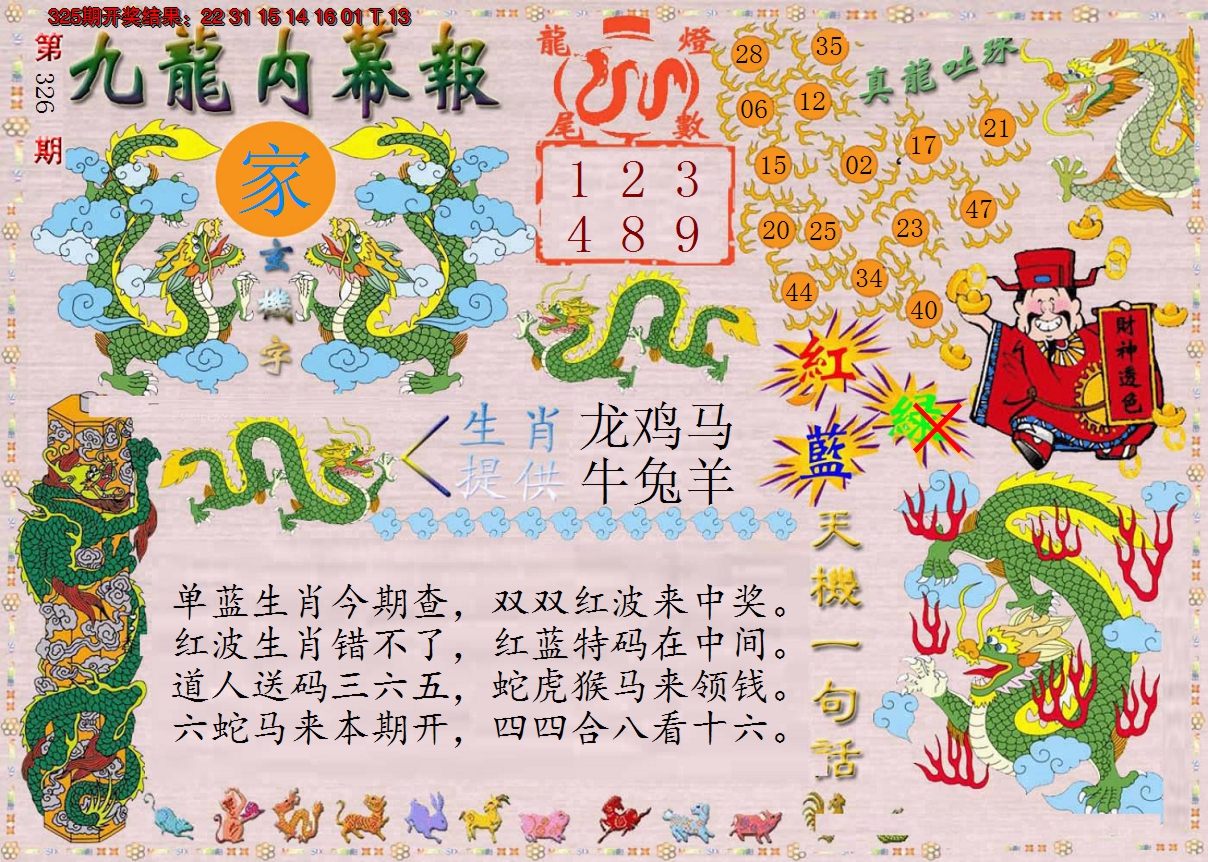 325期开奖结果：22 31 15 14 16 01 T 13
第326期
九龍内幕報
家
玄機字
龍燈
尾數
1 2 3
4 8 9
真龍吐珠
28
35
06
12
15
02
17
21
20
25
23
47
44
34
40
財神透色
紅
綠
藍
生肖
提供
龙鸡马
牛兔羊
天機一句話
单蓝生肖今期查，双双红波来中奖。
红波生肖错不了，红蓝特码在中间。
道人送码三六五，蛇虎猴马来领钱。
六蛇马来本期开，四四合八看十六。